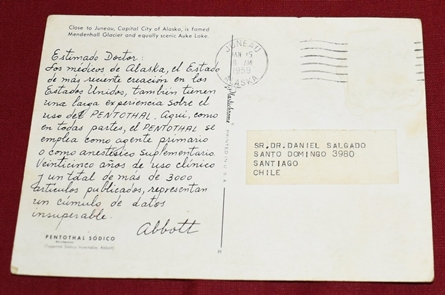 Close to Juneau, Capital City of Alaska, is famed
Mendenhall Glacier and equally scenic Auke Lake.
Estimado Doctor:
Los médicos de Alaska, el Estado
de más reciente creación en los
Estados Unidos, también tienen
una larga experiencia sobre el
uso del PENTOTHAL. Aquí, como
en todas partes, el PENTOTHAL se
emplea como agente primario
o como anestésico suplementario.
Veinticinco años de uso clínico
y un total de más de 3000
artículos publicados, representan
un cúmulo de datos
insuperable.
Abbott
PENTOTHAL SÓDICO
JUNEAU
1959
ALASKA
SR.DR.DANIEL SALGADO
SANTO DOMINGO 3980
SANTIAGO
CHILE